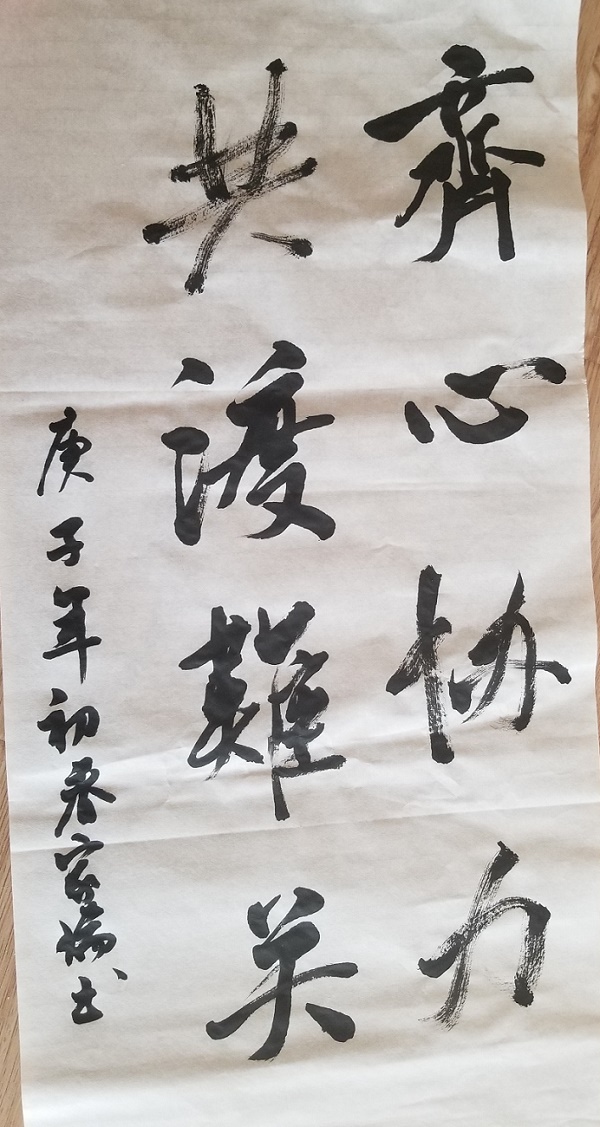 齊心协力
共渡難关
庚子年初春家瑞书